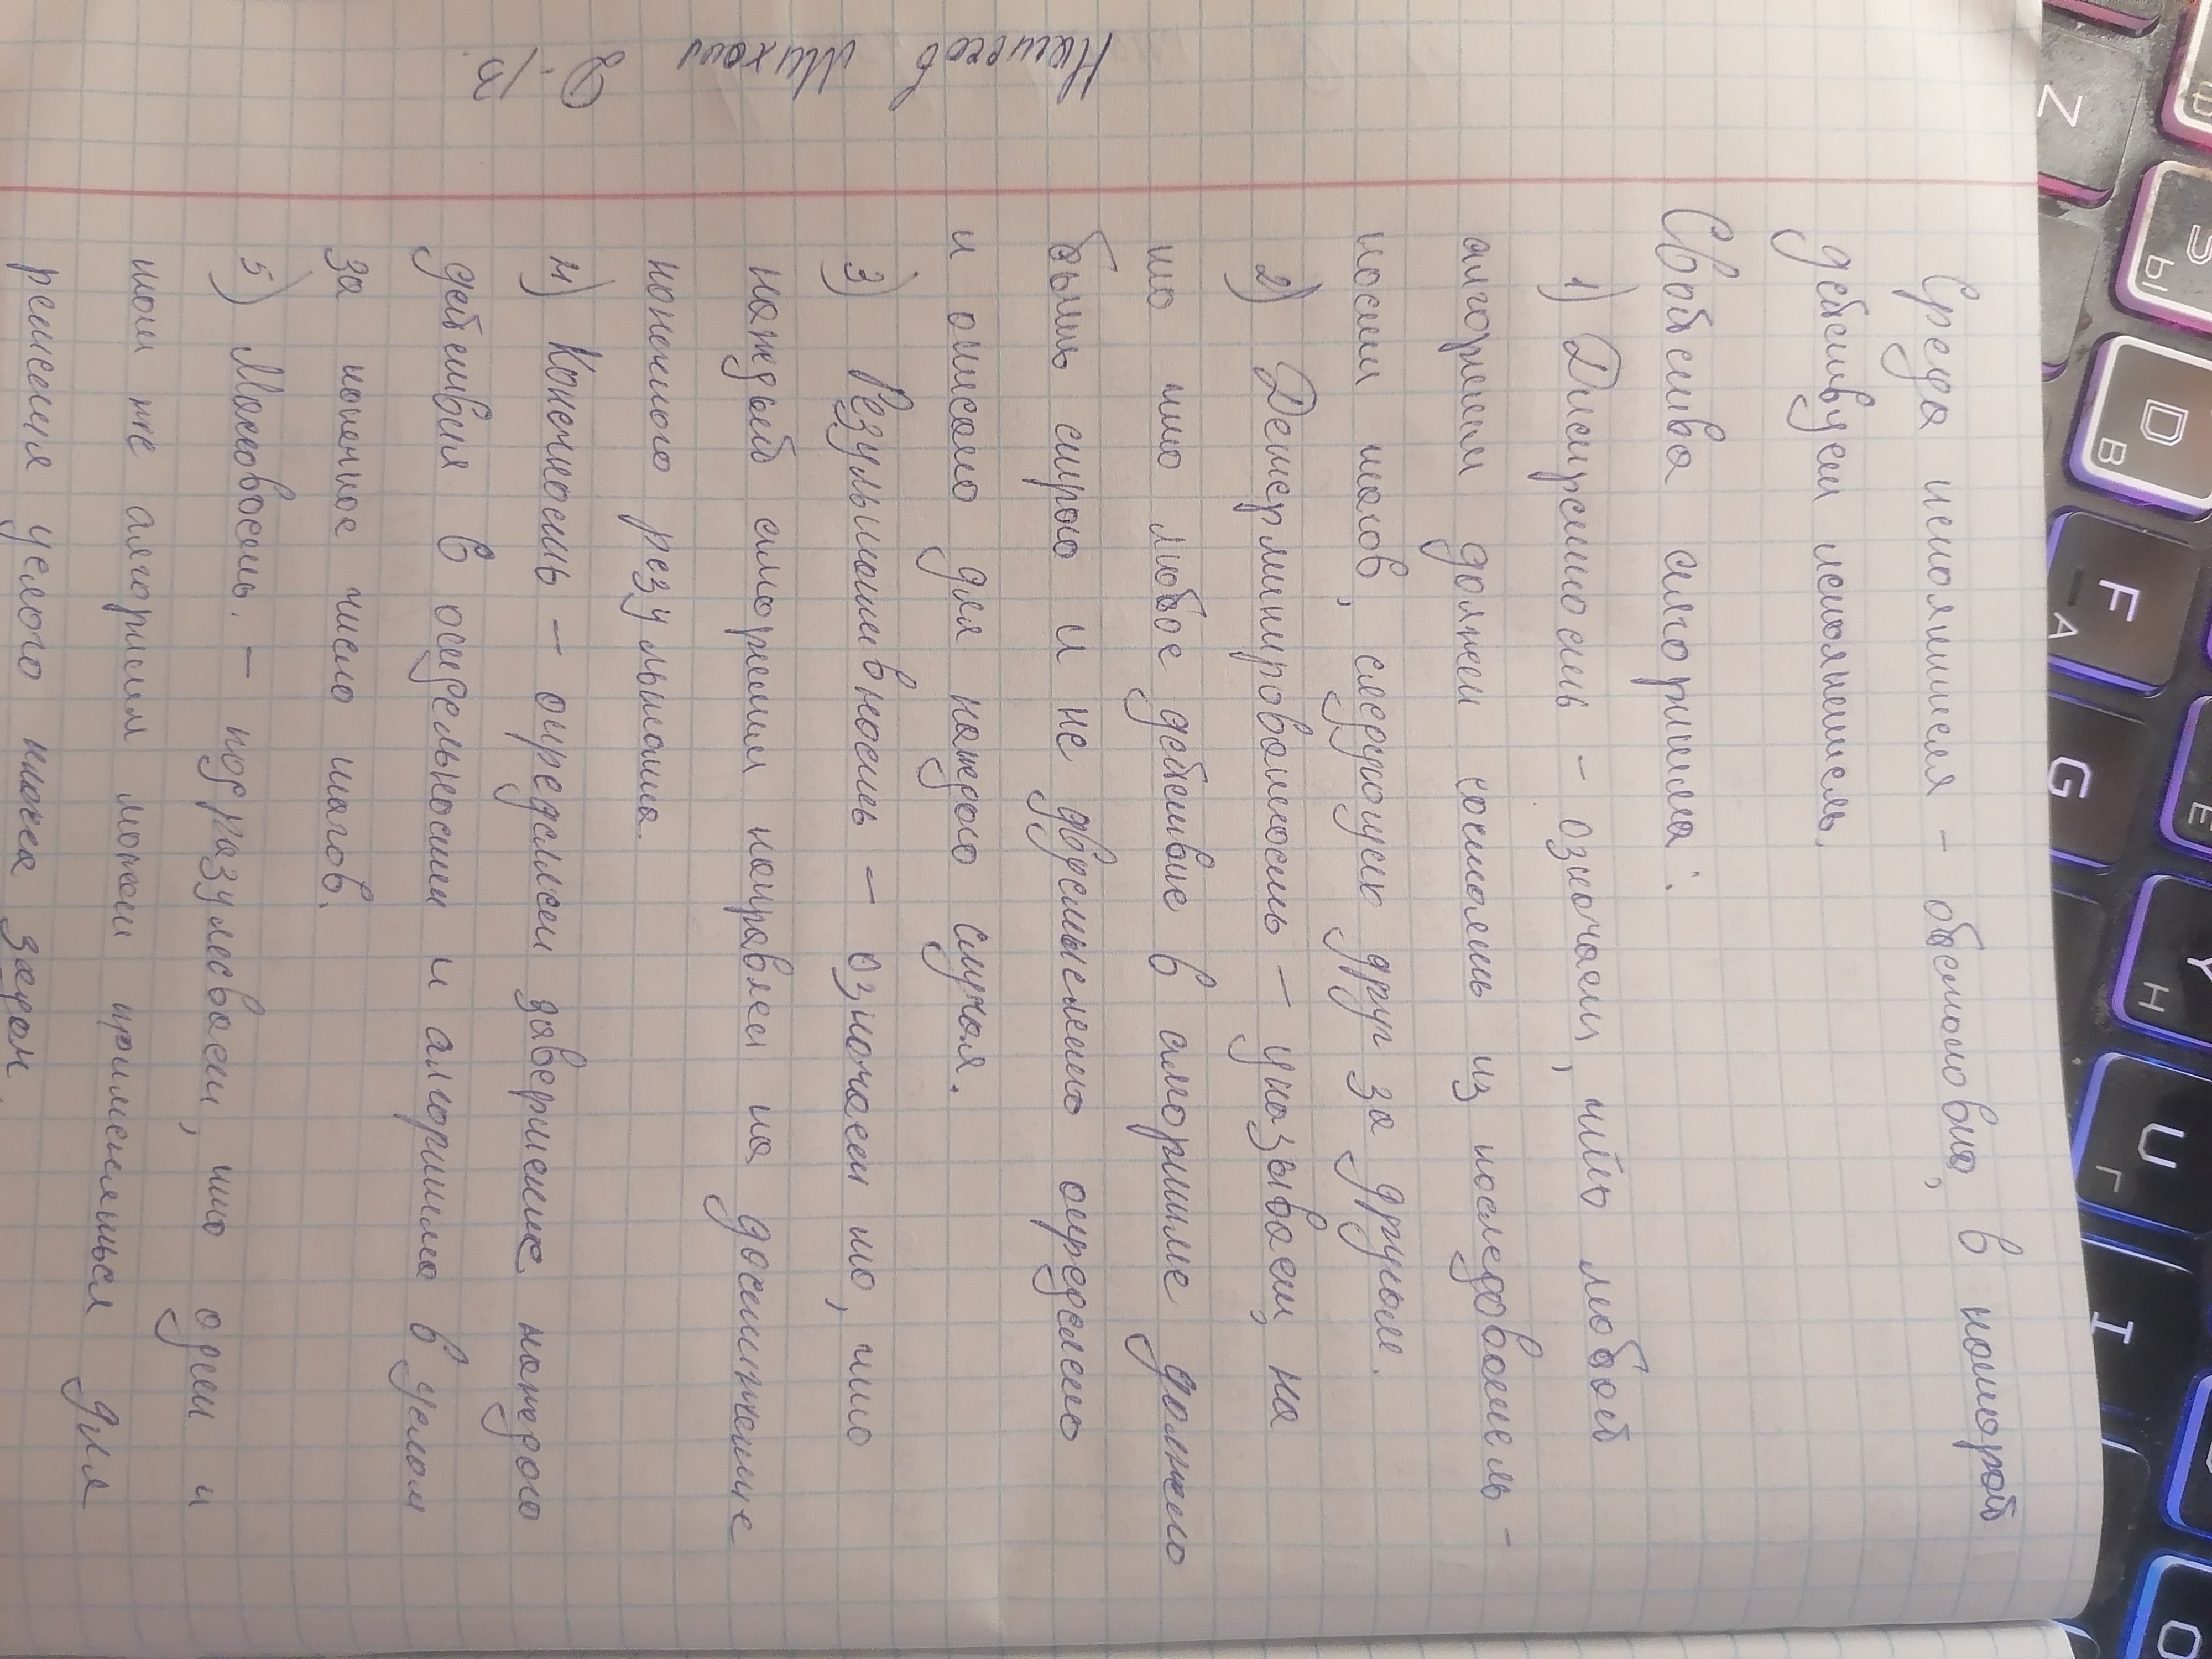 Среда исполнителя - обстановка, в которой
действует исполнитель.
Свойства алгоритма:
1) Дискретность - означает, что любой
алгоритм должен состоять из последователь-
ности шагов, следующих друг за другом.
2) Детерминированность - указывает, на
то что любое действие в алгоритме должно
быть строго и не двусмысленно определено
и описано для каждого случая.
3) Результативность - означает то, что
каждый алгоритм направлен на достижение
конечного результата.
4) Конечность - определяет завершение каждого
действия в отдельности и алгоритма в целом
за конечное число шагов.
5) Массовость. - подразумевает, что один и
тот же алгоритм может применяться для
решения целого класса задач.
Михаил
Z
S Ы
D В
F А
G
E
Y Н
U Г
I
O